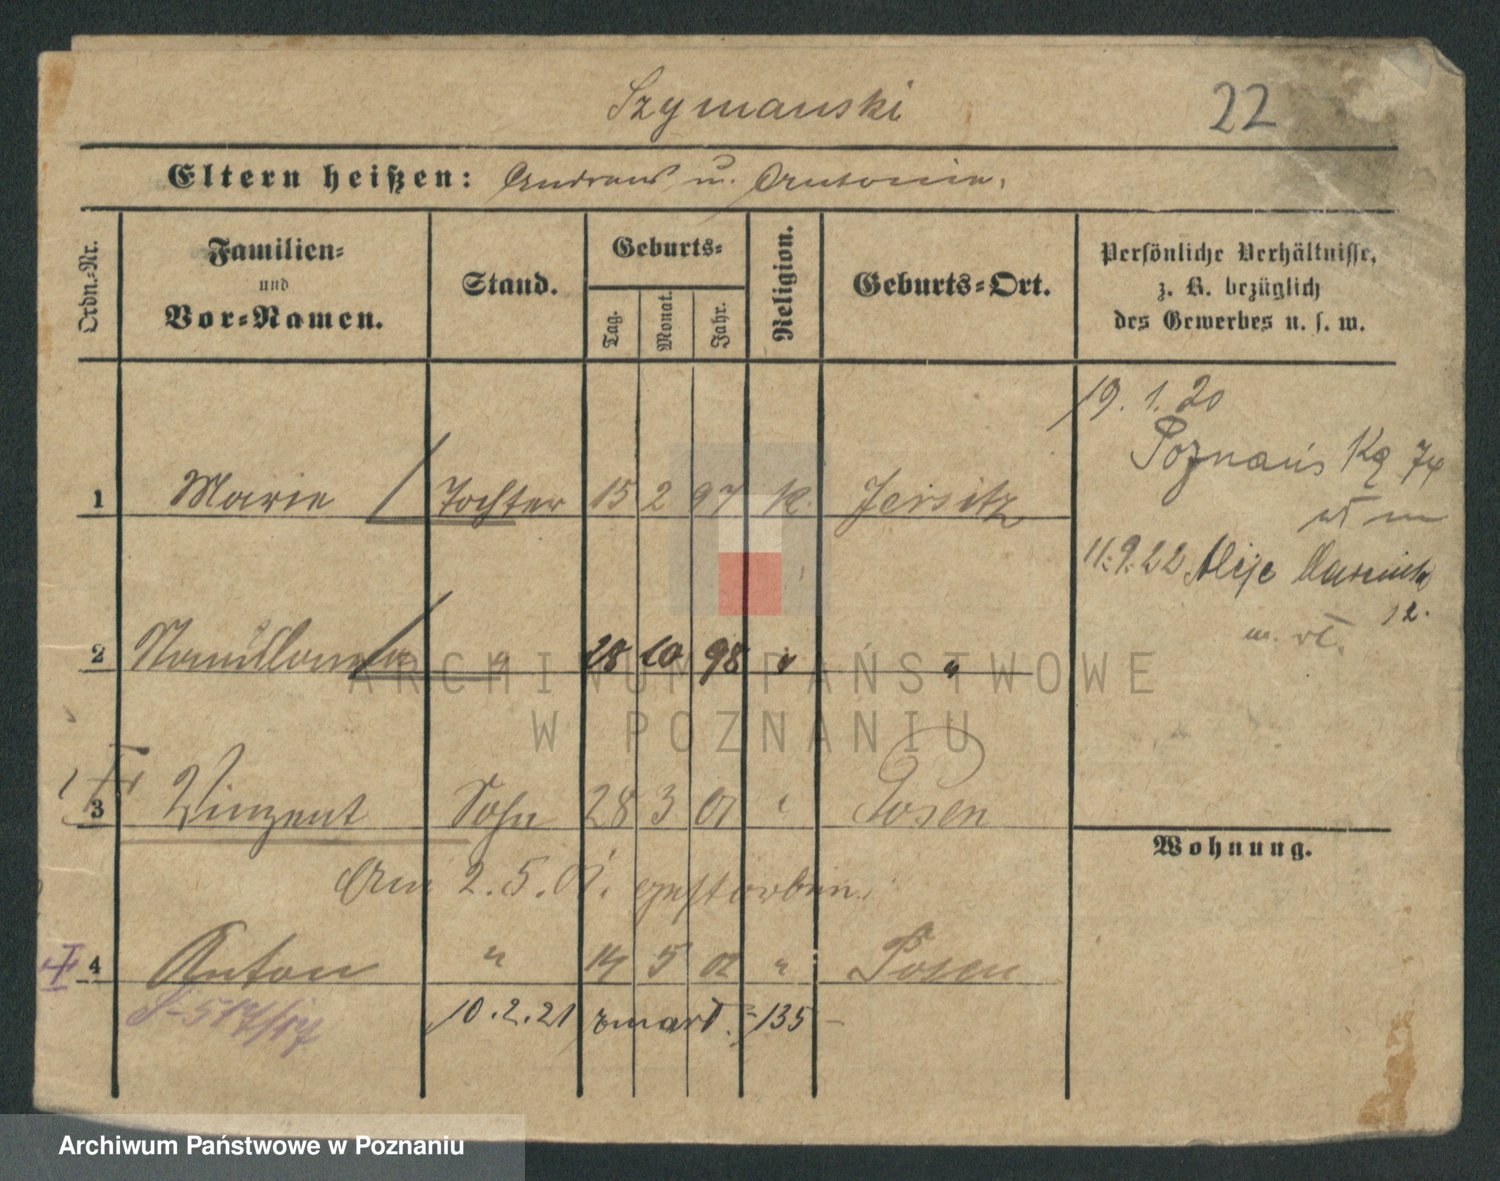 Szymanski
22
Eltern heißen: Andreas u. Antonie.
Ordn.=Nr.
Familien=
und
Vor=Namen.
Stand.
Geburts=
Tag.
Monat.
Jahr.
Religion.
Geburts=Ort.
Persönliche Verhältnisse,
z. B. bezüglich
des Gewerbes u. s. w.
19. 1. 20
Poznań
1 Marie Tochter 15 2 97 k. Jersitz
11.9.22 Aleje
12.
2 Stanislawa " 28 10 98 " "
3 Vinzent Sohn 28 3 01 " Posen
Wohnung.
Am 2.5.01. gestorben.
4 Anton " 14 5 02 " Posen
10.2.21 zmarł. - 135 -
ARCHIWUM PAŃSTWOWE
W POZNANIU
Archiwum Państwowe w Poznaniu